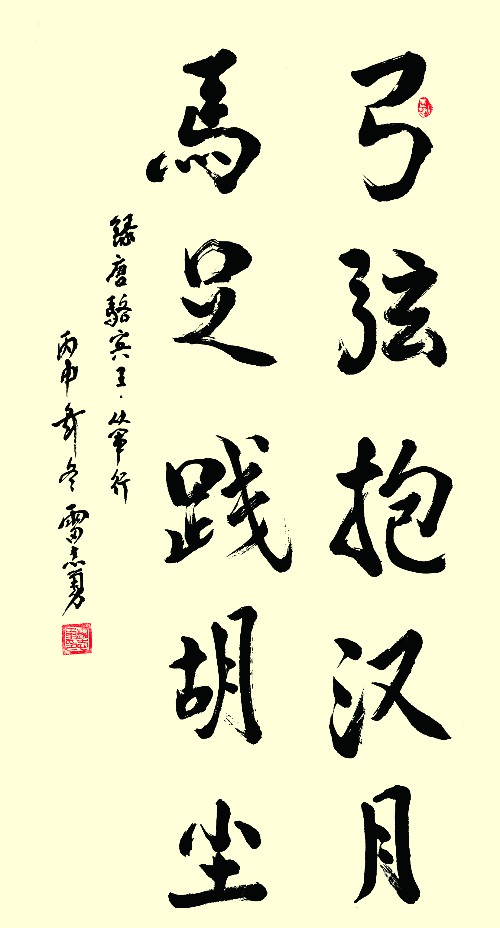 弓弦抱汉月
馬足践胡尘
録唐駱宾王·从军行
丙申年冬雷志勇